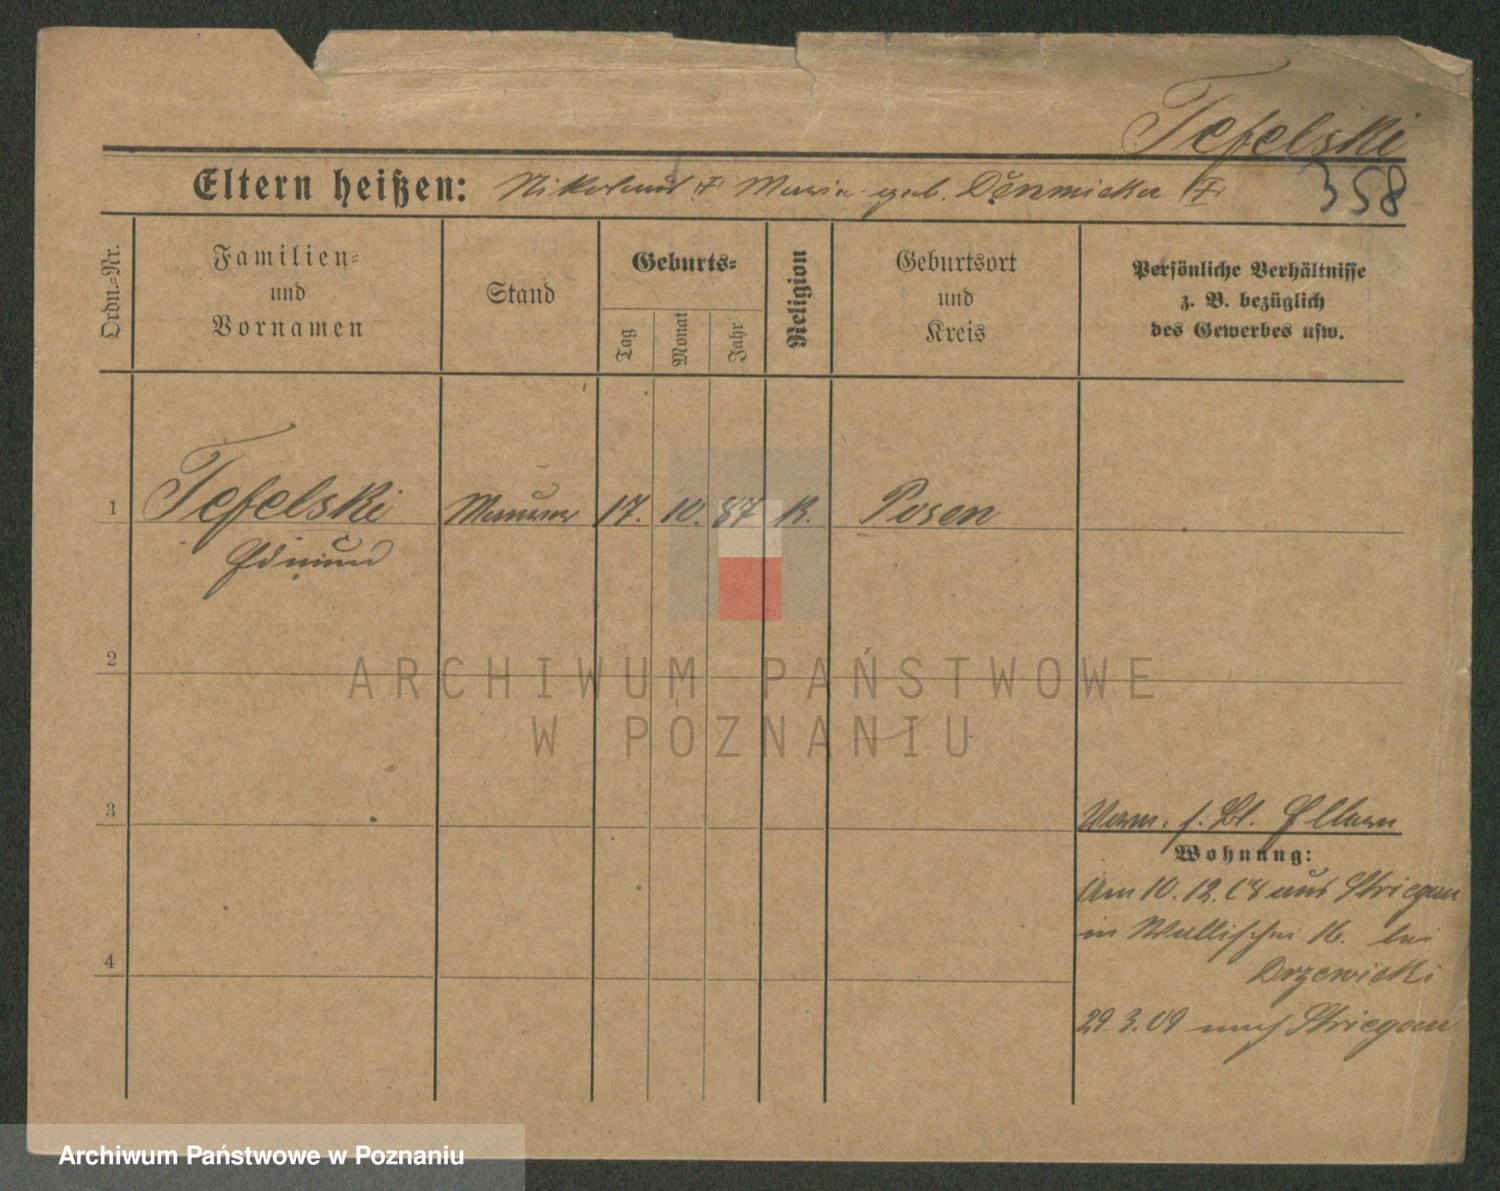 Tefelski
358
Eltern heißen: Nikolaus † Maria geb. †
Ordn.=Nr.
Familien=
und
Vornamen
Stand
Geburts=
Tag
Monat
Jahr
Religion
Geburtsort
und
Kreis
Persönliche Verhältnisse
z. B. bezüglich
des Gewerbes usw.
1 Tefelski Maurer 17. 10. 87 k. Posen
Edmund
2
ARCHIWUM PAŃSTWOWE
W POZNANIU
3
Verm. s. Bl. Eltern
Wohnung:
Am 10. 12. 08 aus Striegau
in Wallischei 16. bei
Drzewicki
4
29. 3. 09 nach Striegau
Archiwum Państwowe w Poznaniu